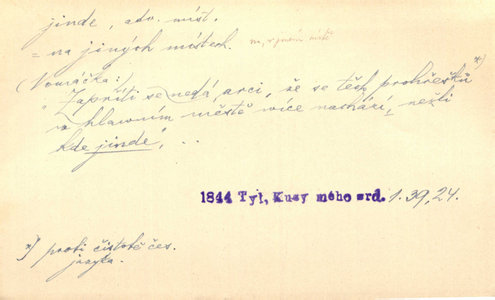 jinde, adv. míst.
= na jiných místech. na, v jiném místě
(Vomáčka:)
"Zapříti se nedá arci, že se těch prohřešků *)
w hlawním městě více nachází, nežli
kde jinde," ...
1844 Tyl, Kusy mého srd. 1. 39, 24.
*) proti čistotě čes.
jazyka.